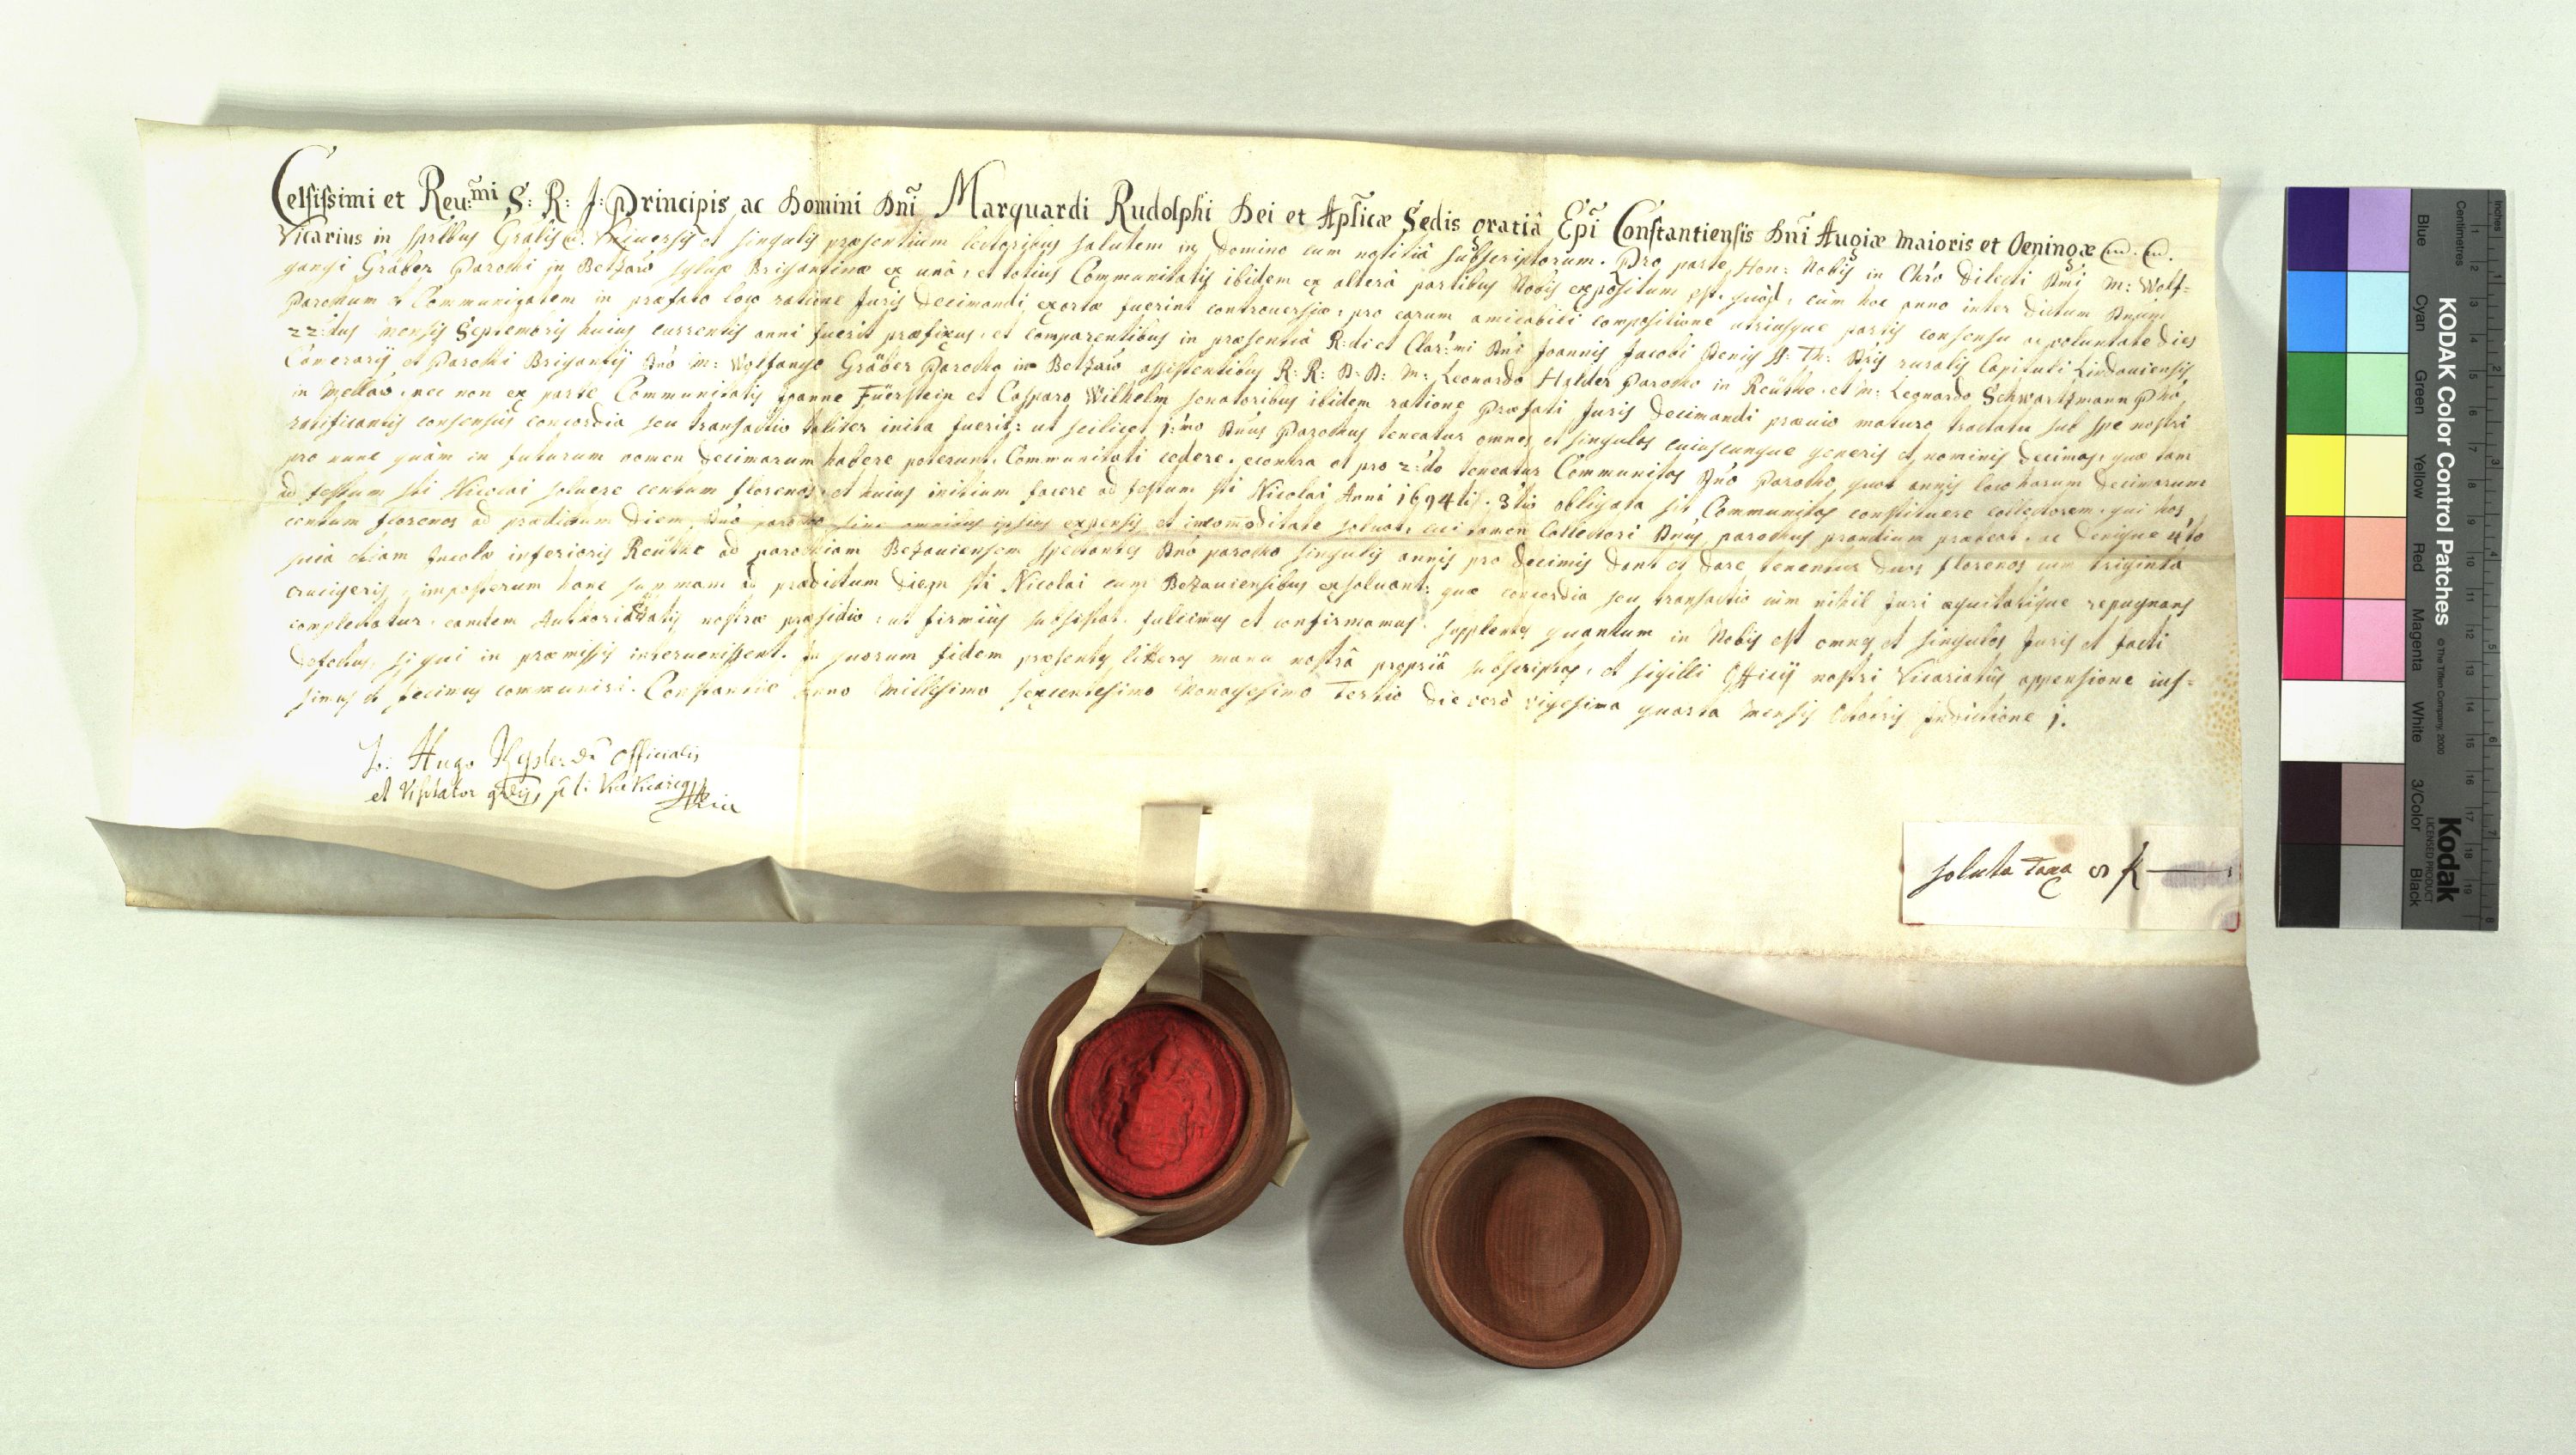 Celsissimi et Reu:mi S: R: J: Principis ac Domini Dñi Marquardi Rudolphi Dei et Aplicæ Sedis gratiâ Epi Constantiensis Dñi Augiæ maioris et Oeningæ
Vicarius in sprlbus Gralis Vniuersis et singulis præsentium lectoribus salutem in Domino cum notitiâ subscriptorum. Pro parte Hon: Nobis in Chro dilecti Dñi M: Wolf=
gangi Gräber Parochi in Betzaw sylvæ Brigantinæ ex unâ, et totius Communitatis ibidem ex alterâ partibus Nobis expositum est, quòd, cùm hoc anno inter dictum Dñum
Parochum et Communitatem in præfato loco ratione Juris decimandi exortæ fuerint controuersiæ, pro earum amicabili compositione utriusque partis consensu ac voluntate dies
22:dus mensis Septembris huius currentis anni fuerit præfixus, et comparentibus in præsentiâ R:di et Clar:mi Dñi Joannis Jacobi SS. Th: ruralis Capituli Lindauiensis
Camerarij et Parochi Brigantij Dño M: Wolfango Gräber Parocho in Betzaw assistentibus R: R: D: D: M: Leonardo Parocho in Reüthe, et M: Leonardo Schwartzmann
in Mellaw, nec non ex parte Communitatis Joanne Füerstein et Casparo Wilhelm senatoribus ibidem ratione præfati Juris decimandi præuio maturo tractatu sub spe nostri
ratificantis consensus concordia seu transactio taliter inita fuerit: ut scilicet 1:mo Dñus Parochus teneatur omnes et singulas cuiuscunque generis et nominis decimas, quæ tam
pro nunc quàm in futurum nomen decimarum habere poterunt, Communitati cedere, econtra et pro 2:do teneatur Communitas Dño Parocho quot annis loco harum decimarum
ad festum sti Nicolai soluere centum florenos, et huius initium facere ad festum sti Nicolai Anni 1694tis. 3tio obligata sit Communitas constituere collectorem, qui hos
centum florenos ad prædictum diem Dño parocho sine omnibus ipsius expensis et incommoditate soluat, cui tamen Collectori Dñus parochus prandium præbeat, ac denique 4to
quia etiam Incolæ inferioris Reüthe ad parochiam Bezauiensem spectantes Dño parocho singulis annis pro decimis dent et dare teneantur duos florenos cum triginta
crucigeris, imposterum hanc summam ad prædictum diem sti Nicolai cum Bezauiensibus exsoluant; quæ concordia seu transactio cùm nihil Juri æquitatique repugnans
complectatur, eandem Authoritatis nostræ præsidio, ut firmiùs subsistat, fulcimus et confirmamus, supplentes quantum in Nobis est omnes et singulos Juris et facti
defectus, si qui in præmissis interuenissent. In quorum fidem præsentes litteras manu nostrâ propriâ subscriptas, et sigilli Officij nostri Vicariatus appensione ius=
simus et fecimus communiri. Constantiæ Anno Millesimo sexcentesimo Nonagesimo Tertio die verò vigesima quarta mensis Octobris Indictione 1.
Jo: Hugo Officialis
et Visitator
soluta Taxa
KODAK Color Control Patches
© The Tiffen Company, 2000
Kodak
LICENSED PRODUCT
Blue
Cyan
Green
Yellow
Red
Magenta
White
3/Color
Black
Centimetres
Inches